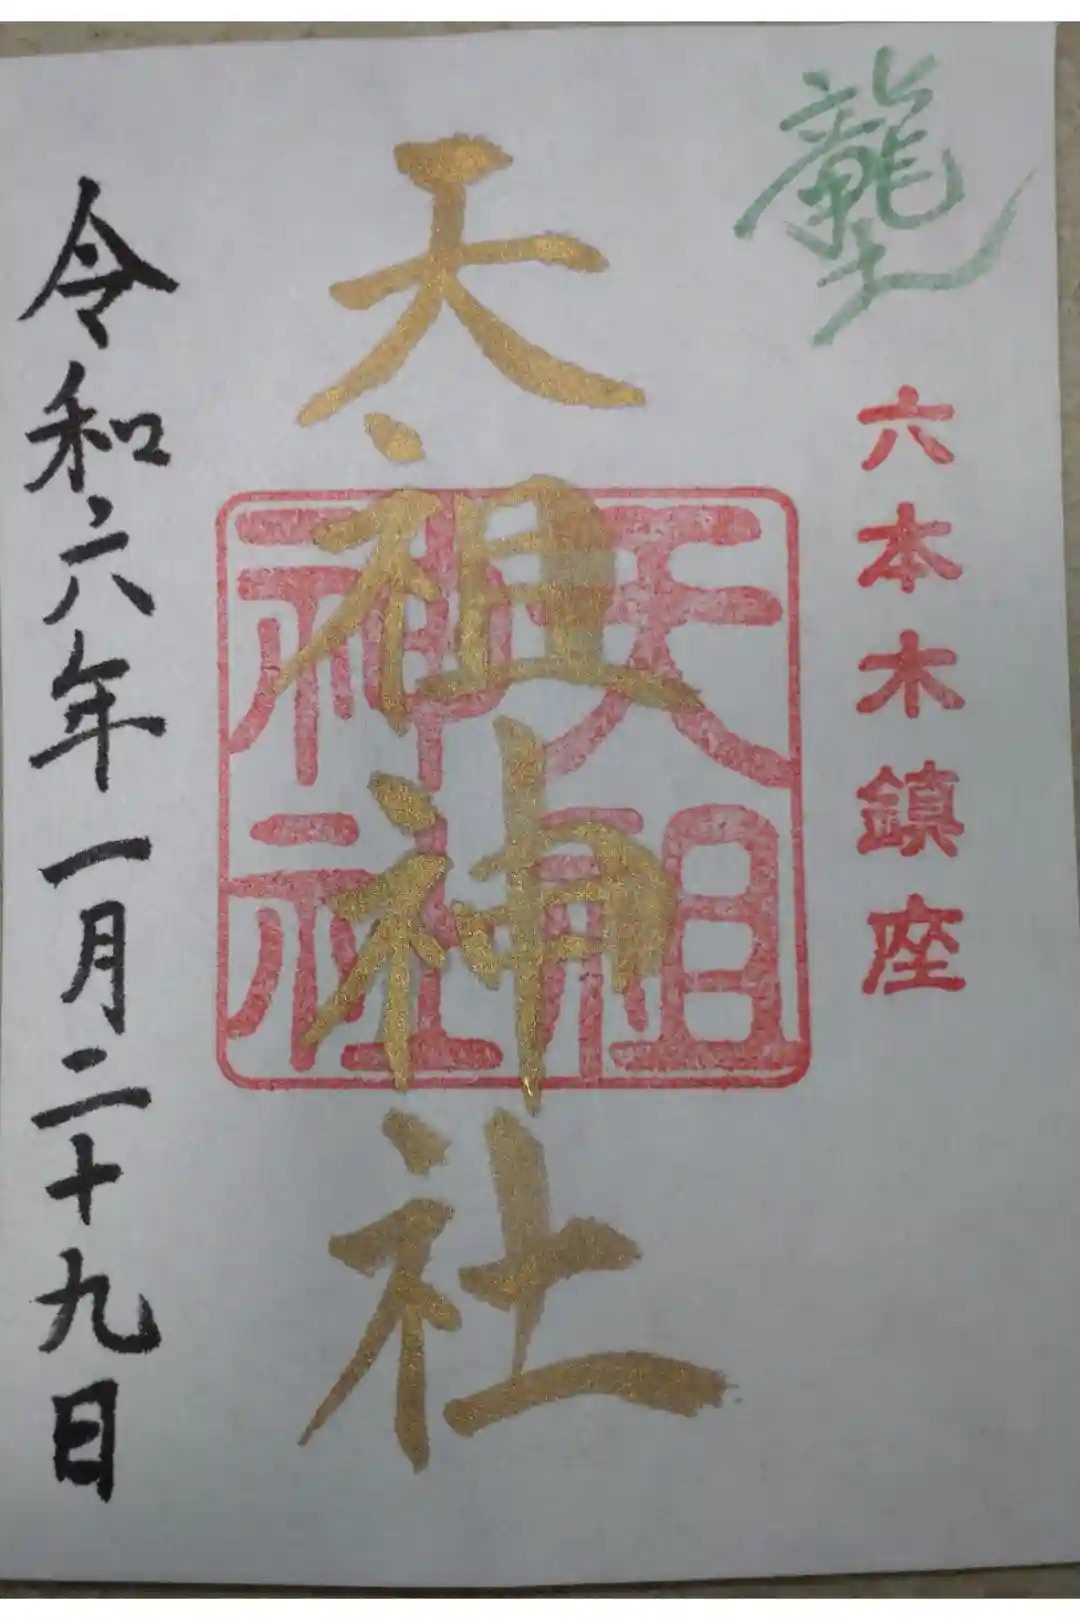 六本木鎮座
天祖神社
天祖神社
令和六年一月二十九日